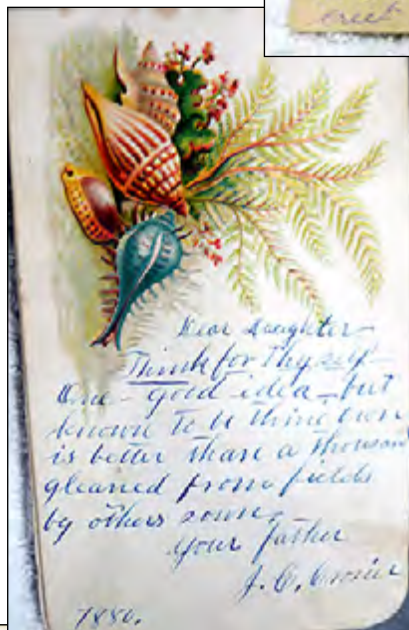 creek
Dear Daughter—
Think for Thyself—
One - good idea - but
known To be thine own
is better than a thousand
gleaned from fields
by others sown.
Your father
J. C. Crosier
1880.